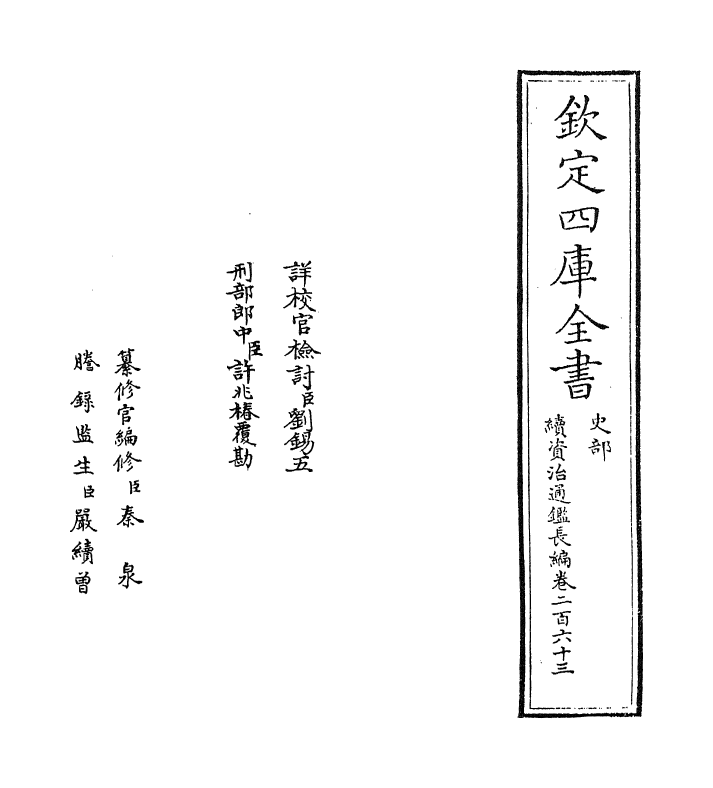 欽定四庫全書
史部
續資治通鑑長編卷二百六十三
詳校官檢討臣劉錫五
刑部郎中臣許兆椿覆勘
纂修官編修臣秦泉
謄錄監生臣嚴續曾